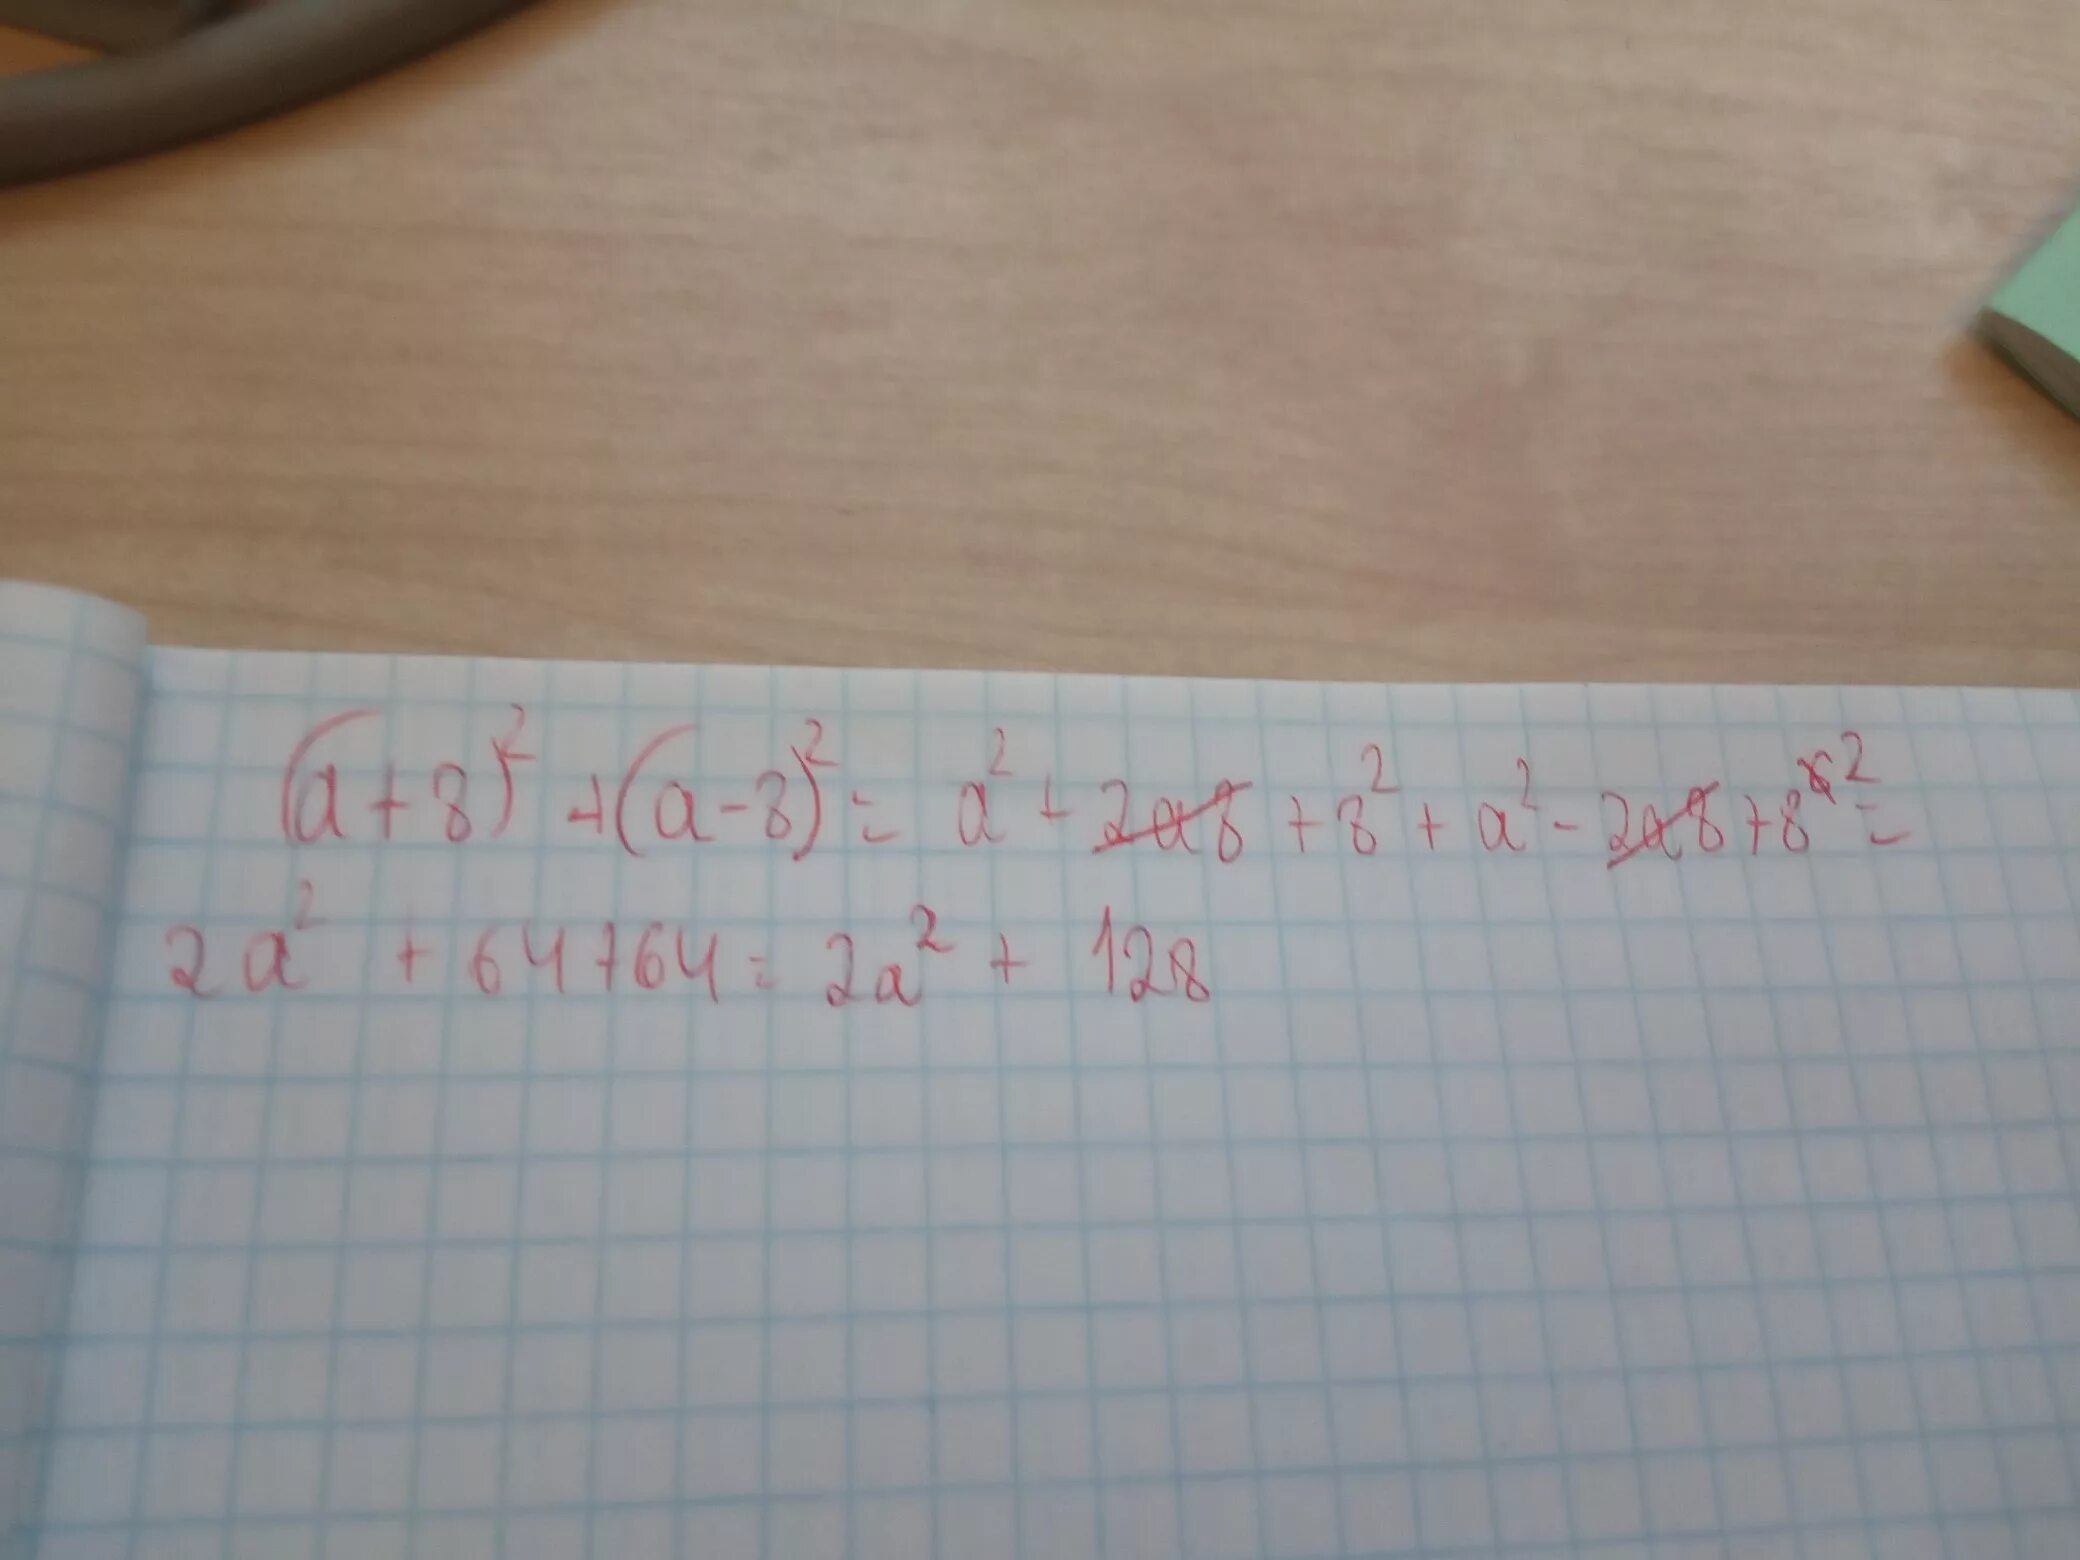 (a+8)² + (a-8)² = a² + 2a8 + 8² + a² - 2a8 + 8² =
2a² + 64 + 64 = 2a² + 128